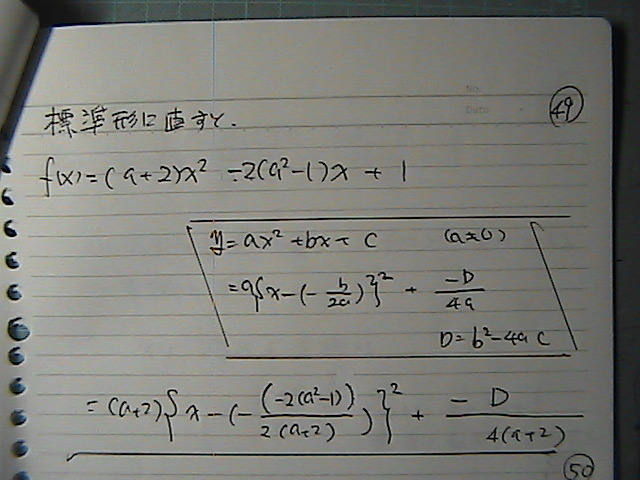 No.
Date
49
標準形に直すと.
f(x) = (a+2)x² -2(a²-1)x + 1
y = ax² + bx + c (a≠0)
= a{x-(-b/2a)}² + -D/4a
D = b²-4ac
= (a+2){x-(-(-2(a²-1))/2(a+2))}² + -D/4(a+2)
50